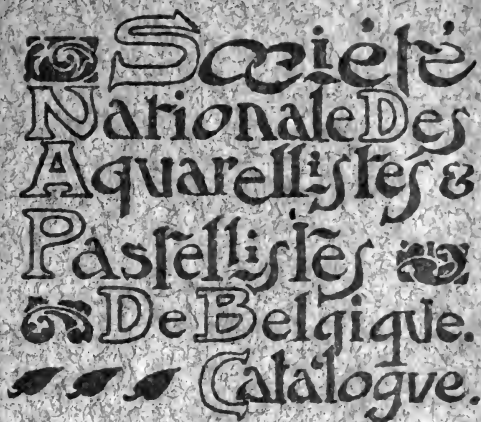 Société
Nationale Des
Aquarellistes &
Pastellistes
De Belgique.
Catalogve.